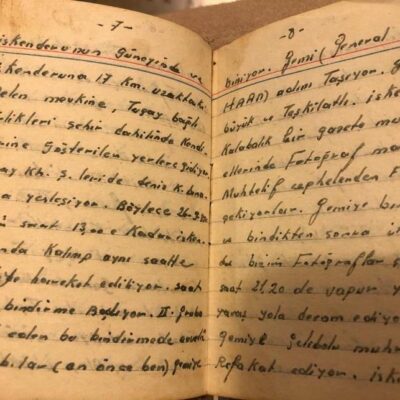 -7-
iskenderunun Güneyinde ve
skenderuna 17 Km. uzaktaki
elen mevkine, Tugay bağlı
birlikleri şehir dahilinde Kendi
rine Gösterilen yerlere gidiyor
ay Kh. ş. leride deniz k. bına
a yerleşiyor. Böylece
saat 13,00 e Kadar isken.
nda Kalınıp aynı saatte
hareket ediliyor. saat
bindirme Başlıyor. II. Gruba
eden bu bindirmede evvelâ
lar (en önce ben) gemiye
-8-
biniyor. Gemi (General
HAAN) adını Taşıyor. G
büyük ve Teşkilatlı. iske
Kalabalık bir gazete mu
ellerinde Fotoğraf ma
Muhtelif cephelerden F
çekiyorlar. Gemiye bin
ve bindikten sonra
da bizim Fotoğraflar
saat 21,20 de vapur
yavaş yola devam ediyo
gemiye muhr
Refakat ediyor. iske